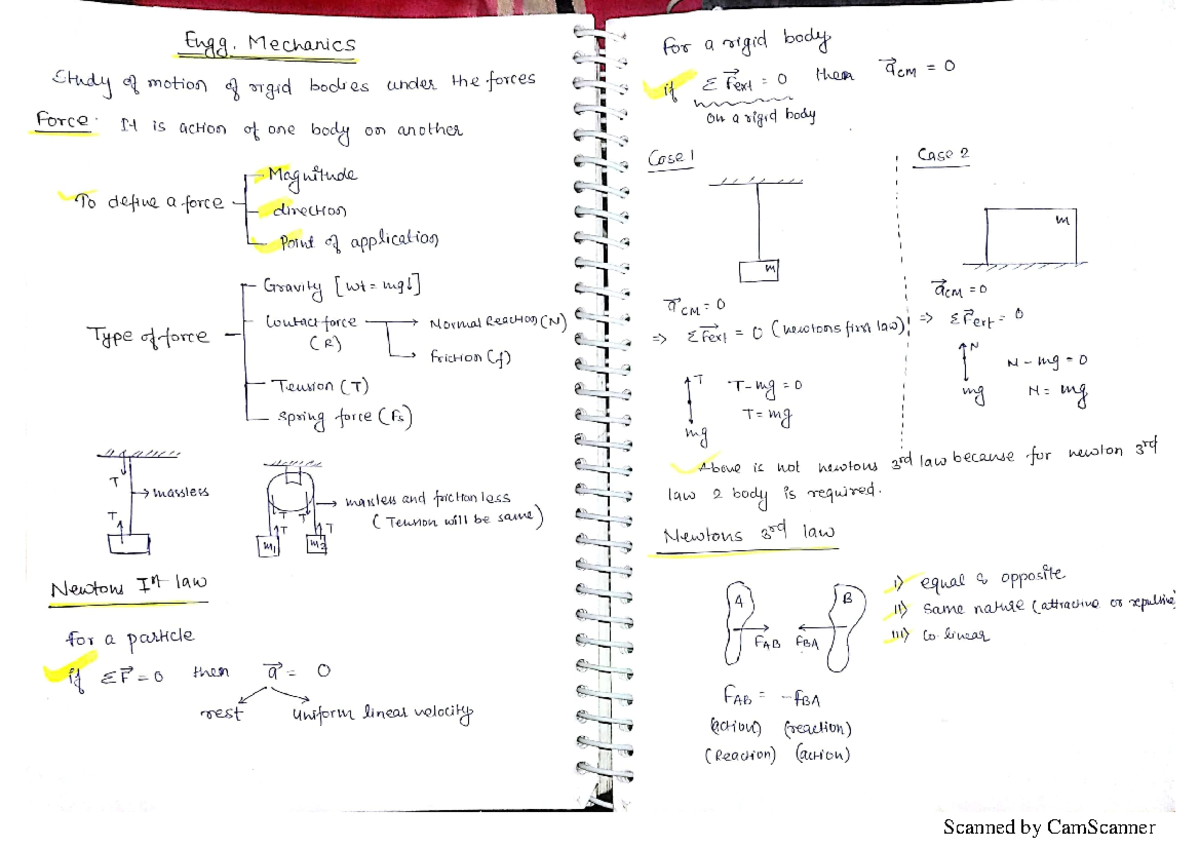 Engg. Mechanics
Study of motion of rigid bodies under the forces
Force. It is action of one body on another
To define a force
Magnitude
direction
Point of application
Type of force
Gravity [wt = mg↓]
Contact force (R)
Normal Reaction (N)
friction (f)
Tension (T)
spring force (Fs)
T
T
massless
T
T
T
T
m1
m2
massless and frictionless
(Tension will be same)
Newtons Ist law
for a particle
if ΣF⃗ = 0 then a⃗ = 0
rest uniform linear velocity
for a rigid body
if ΣF⃗ext = 0 then a⃗CM = 0
on a rigid body
Case 1
m
a⃗CM = 0
⇒ ΣF⃗ext = 0 (newtons first law)
T
mg
T - mg = 0
T = mg
Case 2
m
a⃗CM = 0
⇒ ΣF⃗ext = 0
N
mg
N - mg = 0
N = mg
Above is not newtons 3rd law because for newton 3rd
law 2 body is required.
Newtons 3rd law
A
B
FAB
FBA
i) equal & opposite
ii) same nature (attractive or repulsive)
iii) Co linear
FAB = -FBA
(action) (reaction)
(Reaction) (action)
Scanned by CamScanner